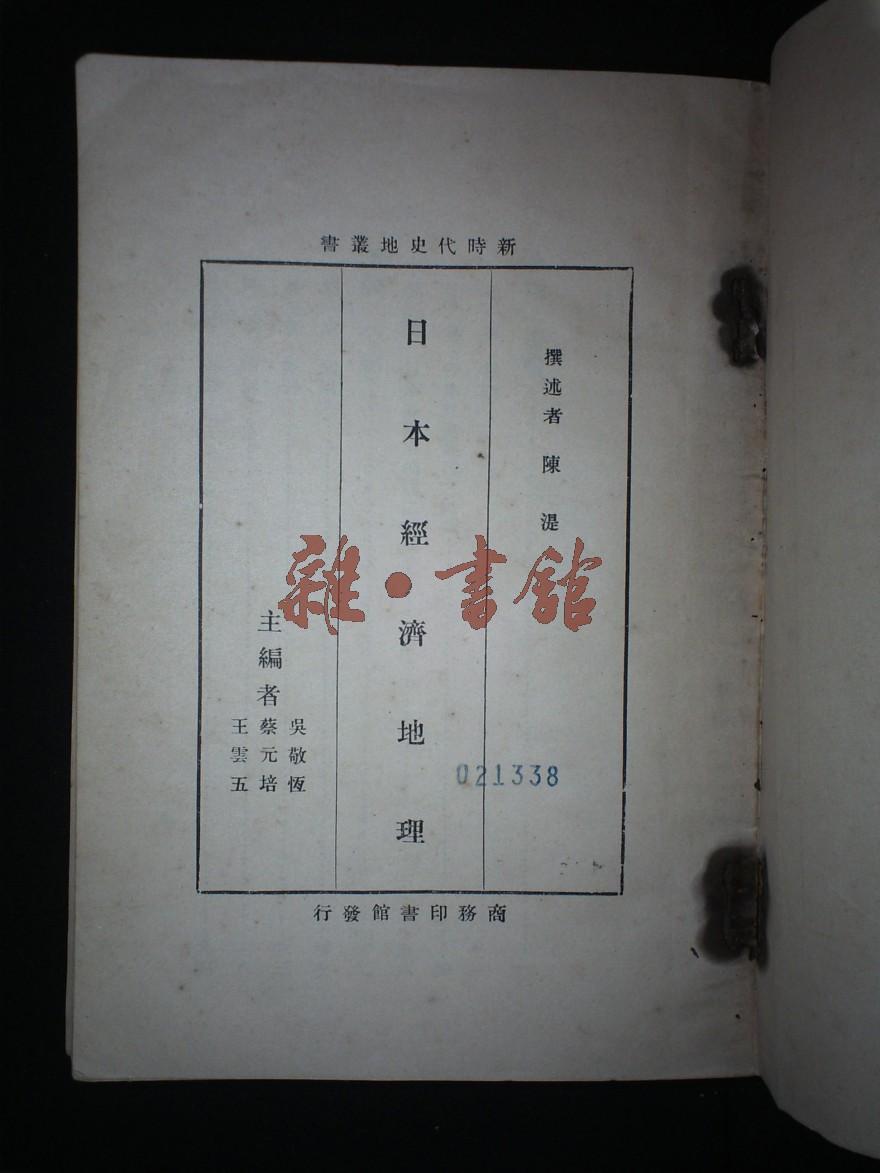 新時代史地叢書
撰述者 陳湜
日本經濟地理
主編者
吳敬恆
蔡元培
王雲五
021338
商務印書館發行
雜·書館